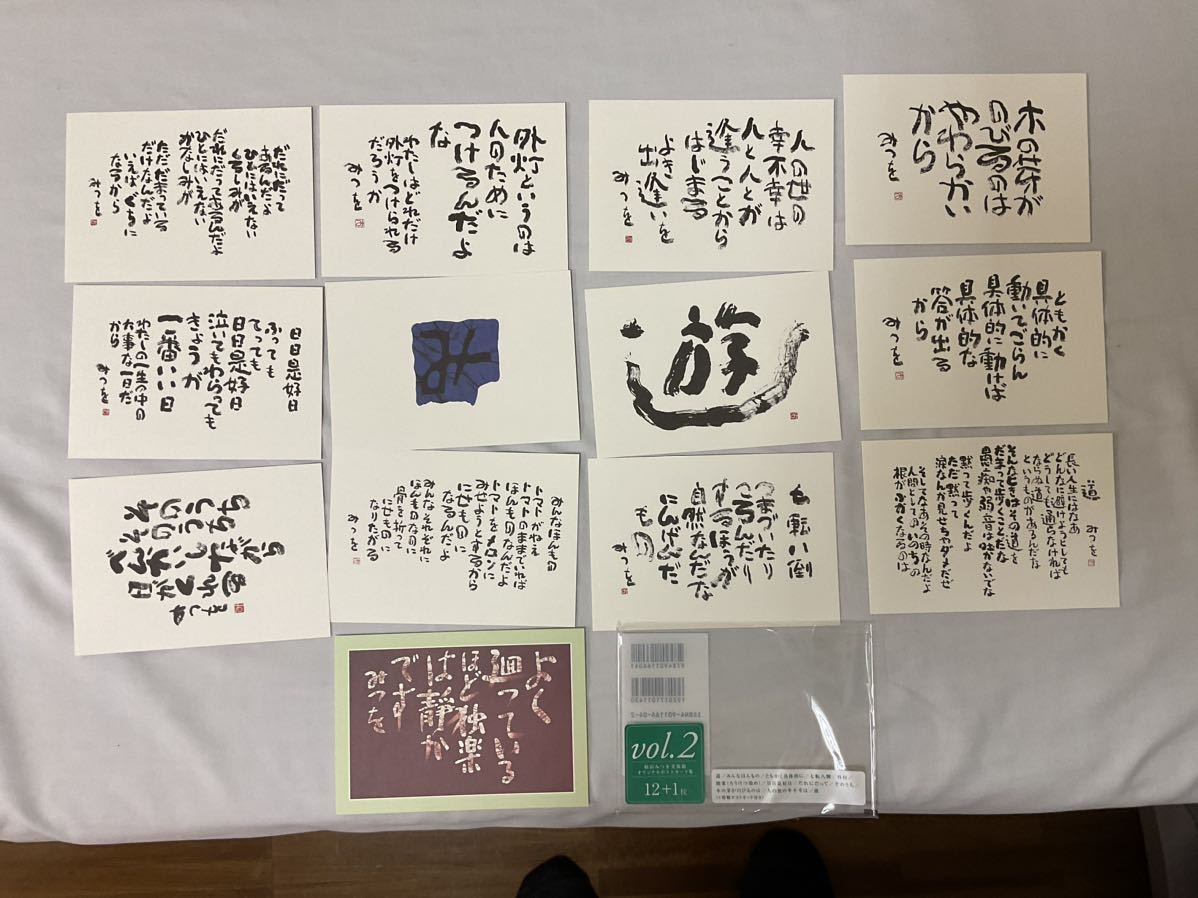 だれにだって
あるんだよ
ひとにはいえない
くるしみが
だれにだってあるんだよ
ひとにはいえない
かなしみが
ただだまっている
だけなんだよ
いえばぐちに
なるから
みつを
外灯というのは
人のために
つけるんだよ
な
わたしはどれだけ
外灯をつけられる
だろうか
みつを
人の世の
幸不幸は
人と人とが
逢うことから
はじまる
よき
出逢いを
みつを
木の芽が
のびるのは
やわらかい
から
みつを
日日是好日
ふっても
てっても
日日是好日
泣いてもわらっても
きょうが
一番いい日
わたしの一生の中の
大事な一日だ
から
みつを
遊
ともかく
具体的に
動いてごらん
具体的に動けば
具体的な
答が出る
から
みつを
そのうち
そのうち
べんかい
しながら
日がくれる
みつを
みんなほんもの
トマトがねえ
トマトのままでいれば
ほんものなんだよ
トマトをメロンに
みせようとするから
にせものに
なるんだよ
みんなそれぞれに
ほんものなのに
骨を折って
にせものに
なりたがる
みつを
七転八倒
つまづいたり
ころんだり
するほうが
自然なんだな
にんげんだ
もの
みつを
道
みつを
長い人生にはなあ
どんなに避けようとしても
どうしても通らなければ
ならぬ道
というものがあるんだな
そんなときはその道を
だまって歩くことだな
愚痴や弱音は吐かないでな
黙って歩くんだよ
ただ黙って
涙なんか見せちゃダメだぜ
そしてなあその時なんだよ
人間としてのいのちの
根がふかくなるのは
よく
廻っている
ほど独楽
は静か
です
みつを
vol.2
相田みつを美術館
オリジナルポストカード集
12+1枚
道/みんなほんもの/ともかく具体的に/七転八倒/外灯/